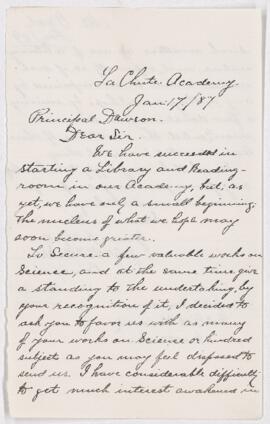 La Chute Academy
Jan. 17/87
Principal Dawson.
Dear Sir.
We have succeeded in
starting a Library and Reading-
room in our Academy, but, as
yet, we have only a small beginning;
the nucleus of what we hope may
soon become greater.
To Secure a few valuable works on
Science, and at the same time give
a standing to the undertaking, by
your recognition of it, I decided to
ask you to favor us with as many
of your works on Science or kindred
subjects as you may feel disposed to
send us. I have considerable difficulty
to get much interest awakened in